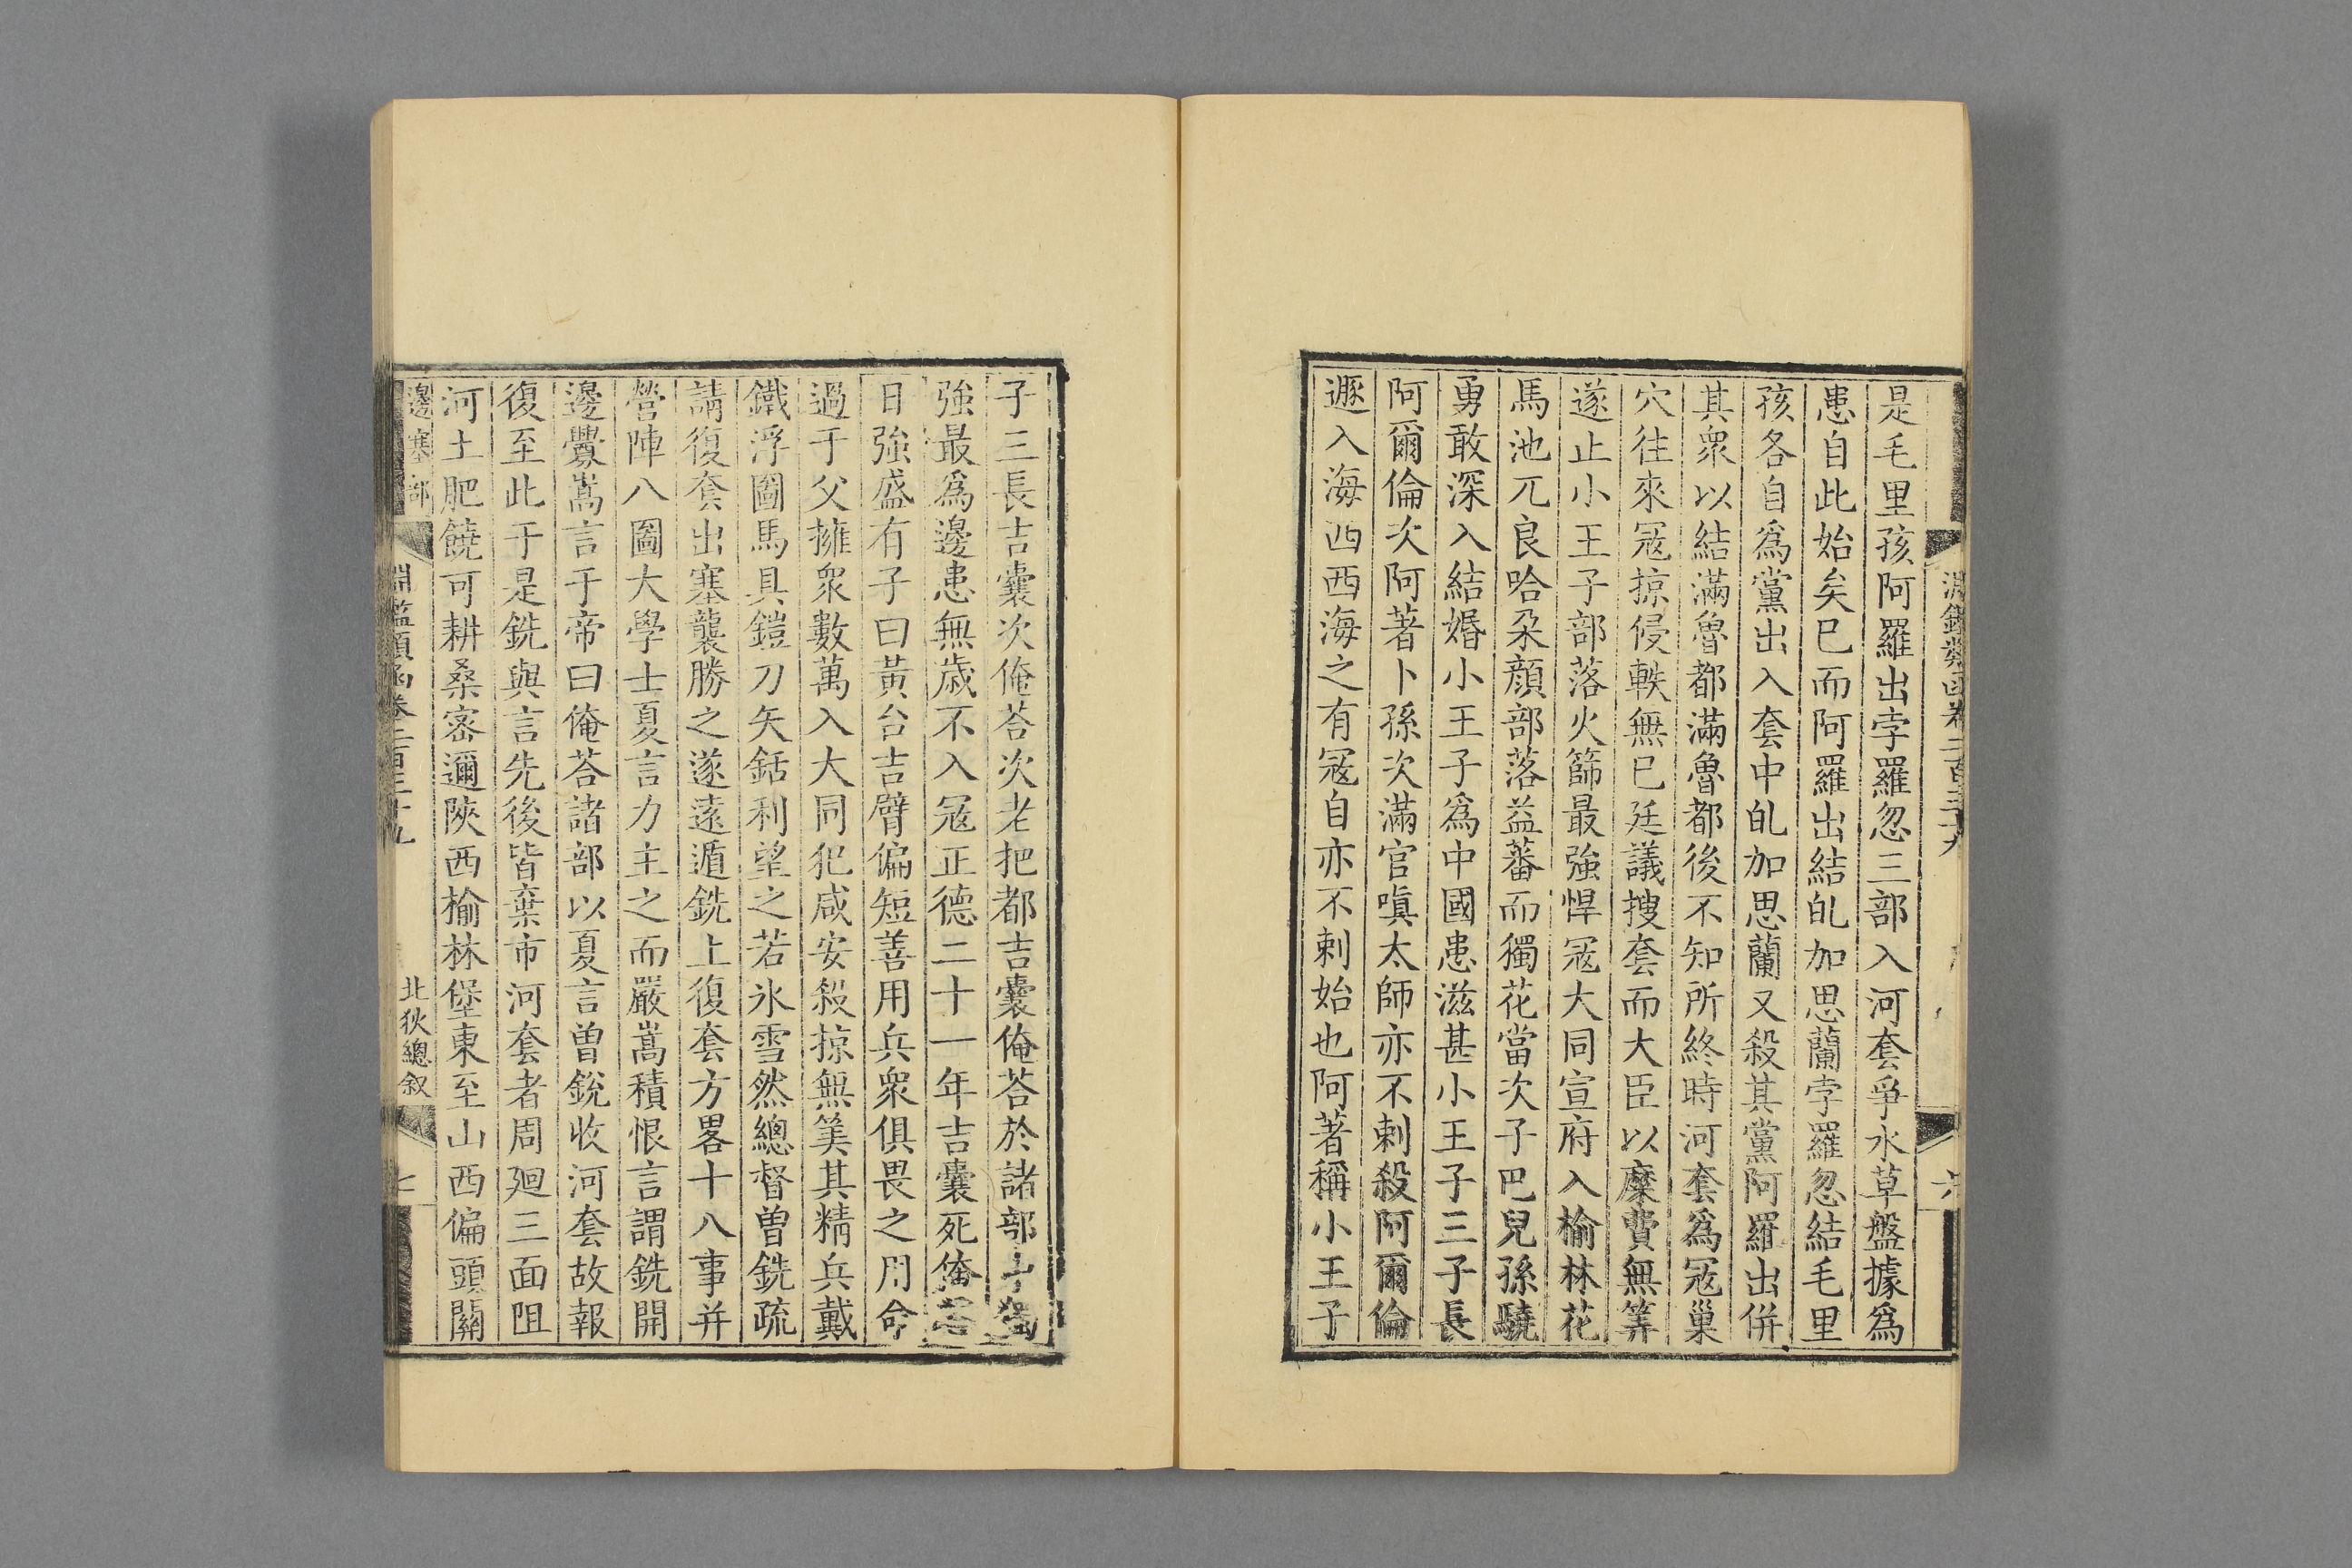 淵鑑類函卷二百三十九
六
是毛里孩阿羅出孛羅忽三部入河套爭水草盤據爲
患自此始矣巳而阿羅出結癿加思蘭孛羅忽結毛里
孩各自爲黨出入套中癿加思蘭又殺其黨阿羅出併
其衆以結滿魯都滿魯都後不知所終時河套爲冦巢
穴往來冦掠侵軼無巳廷議搜套而大臣以糜費無筭
遂止小王子部落火篩最強悍冦大同宣府入榆林花
馬池兀良哈朶顔部落益蕃而獨花當次子巴兒孫驍
勇敢深入結婚小王子爲中國患滋甚小王子三子長
阿爾倫次阿著卜孫次滿官嗔太師亦不剌殺阿爾倫
遯入海西西海之有冦自亦不剌始也阿著稱小王子
子三長吉囊次俺荅次老把都吉囊俺荅於諸部中獨
強最爲邊患無歳不入冦正德二十一年吉囊死俺荅
日強盛有子曰黃台吉臂偏短善用兵衆俱畏之用命
過于父擁衆數萬入大同犯咸安殺掠無筭其精兵戴
鐵浮圖馬具鎧刀矢銛利望之若氷雪然總督曾銑疏
請復套出塞襲勝之遂遠遁銑上復套方畧十八事并
營陣八圖大學士夏言力主之而嚴嵩積恨言謂銑開
邊釁嵩言于帝曰俺荅諸部以夏言曾銑收河套故報
復至此于是銑與言先後皆棄市河套者周廻三面阻
河土肥饒可耕桑宻邇陝西榆林堡東至山西偏頭關
邊塞部
淵鑑類函卷二百三十九
北狄總叙
七